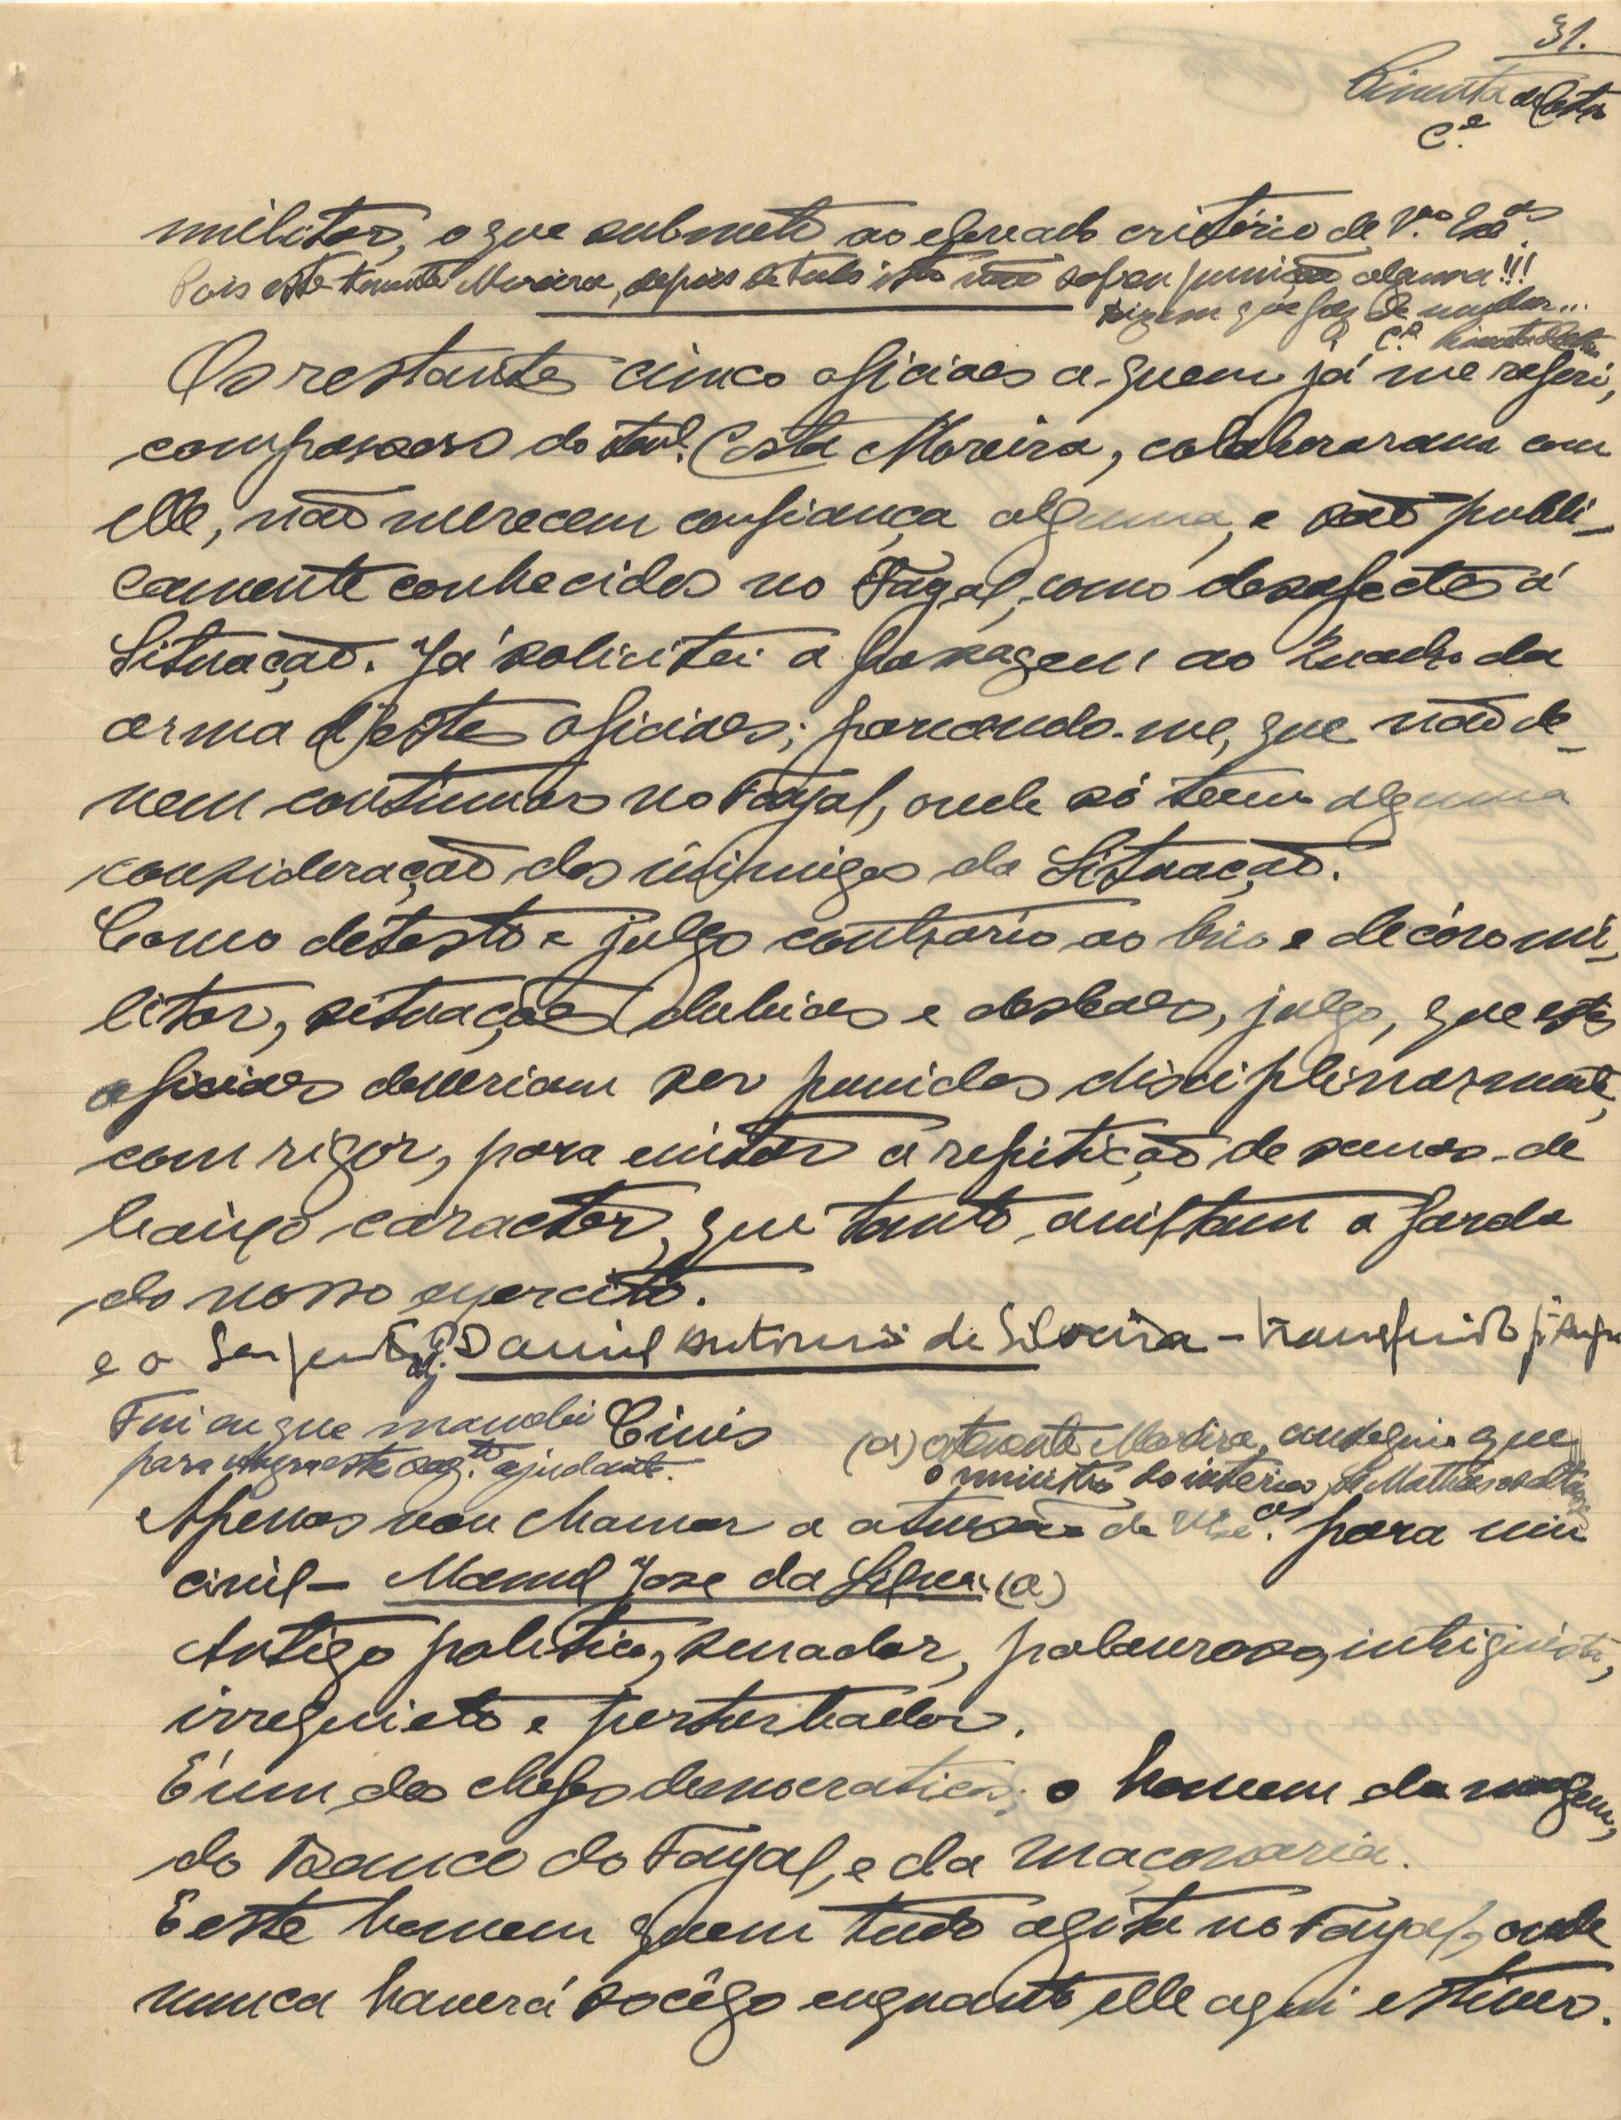 31.
Pimenta de Castro
C.el
militar, o que submeto ao elevado critério de V.as Ex.as
Pois este tenente Moreira, depois de tudo isto não sofreu punição alguma!!!
dizem que
C.el Pimenta de Castro
Os restantes cinco oficiaes a quem já me referi,
compassas do ten.te Costa Moreira, colaboraram com
elle, não merecem confiança alguma, e são publi-
camente conhecidos no Fayal, como desafectos á
Situação. Já solicitei a passagem ao Quadro da
arma d'estes oficiaes; parecendo-me, que não de-
vem continuar no Fayal, onde só teem alguma
consideração dos inimigos da Situação.
Como detesto e julgo contrário ao brio e decôro mi-
litar, situações dubias e desleaes, julgo, que estes
oficiaes deveriam ser punidos disciplinarmente,
com rigor, para evitar a repetição de scenas de
baixo caracter, que tanto aviltam a farda
do nosso exercito.
e o Sargento Aj. Daniel Antonio da Silveira – transferido p.ª Angra
Fui eu que mandei
para Angra este sarg.to ajudante.
Civis
(a) o tenente Moreira, conseguio que
o ministro do interior
Apenas vou chamar a atenção de V.as Ex.as para um
civil – Manuel José da Silva (a)
Antigo politico, senador, palavroso, intriguista,
irrequieto e perturbador.
É um dos chefes democraticos; o homem da moagem,
do Banco do Fayal, e da maçonaria.
É este homem quem tudo agita no Fayal, onde
nunca haverá socêgo enquanto elle aqui estiver.